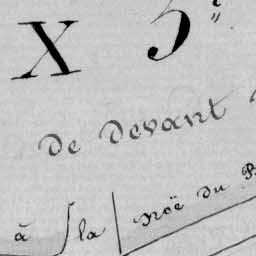 X 5
de devant
à la noë du